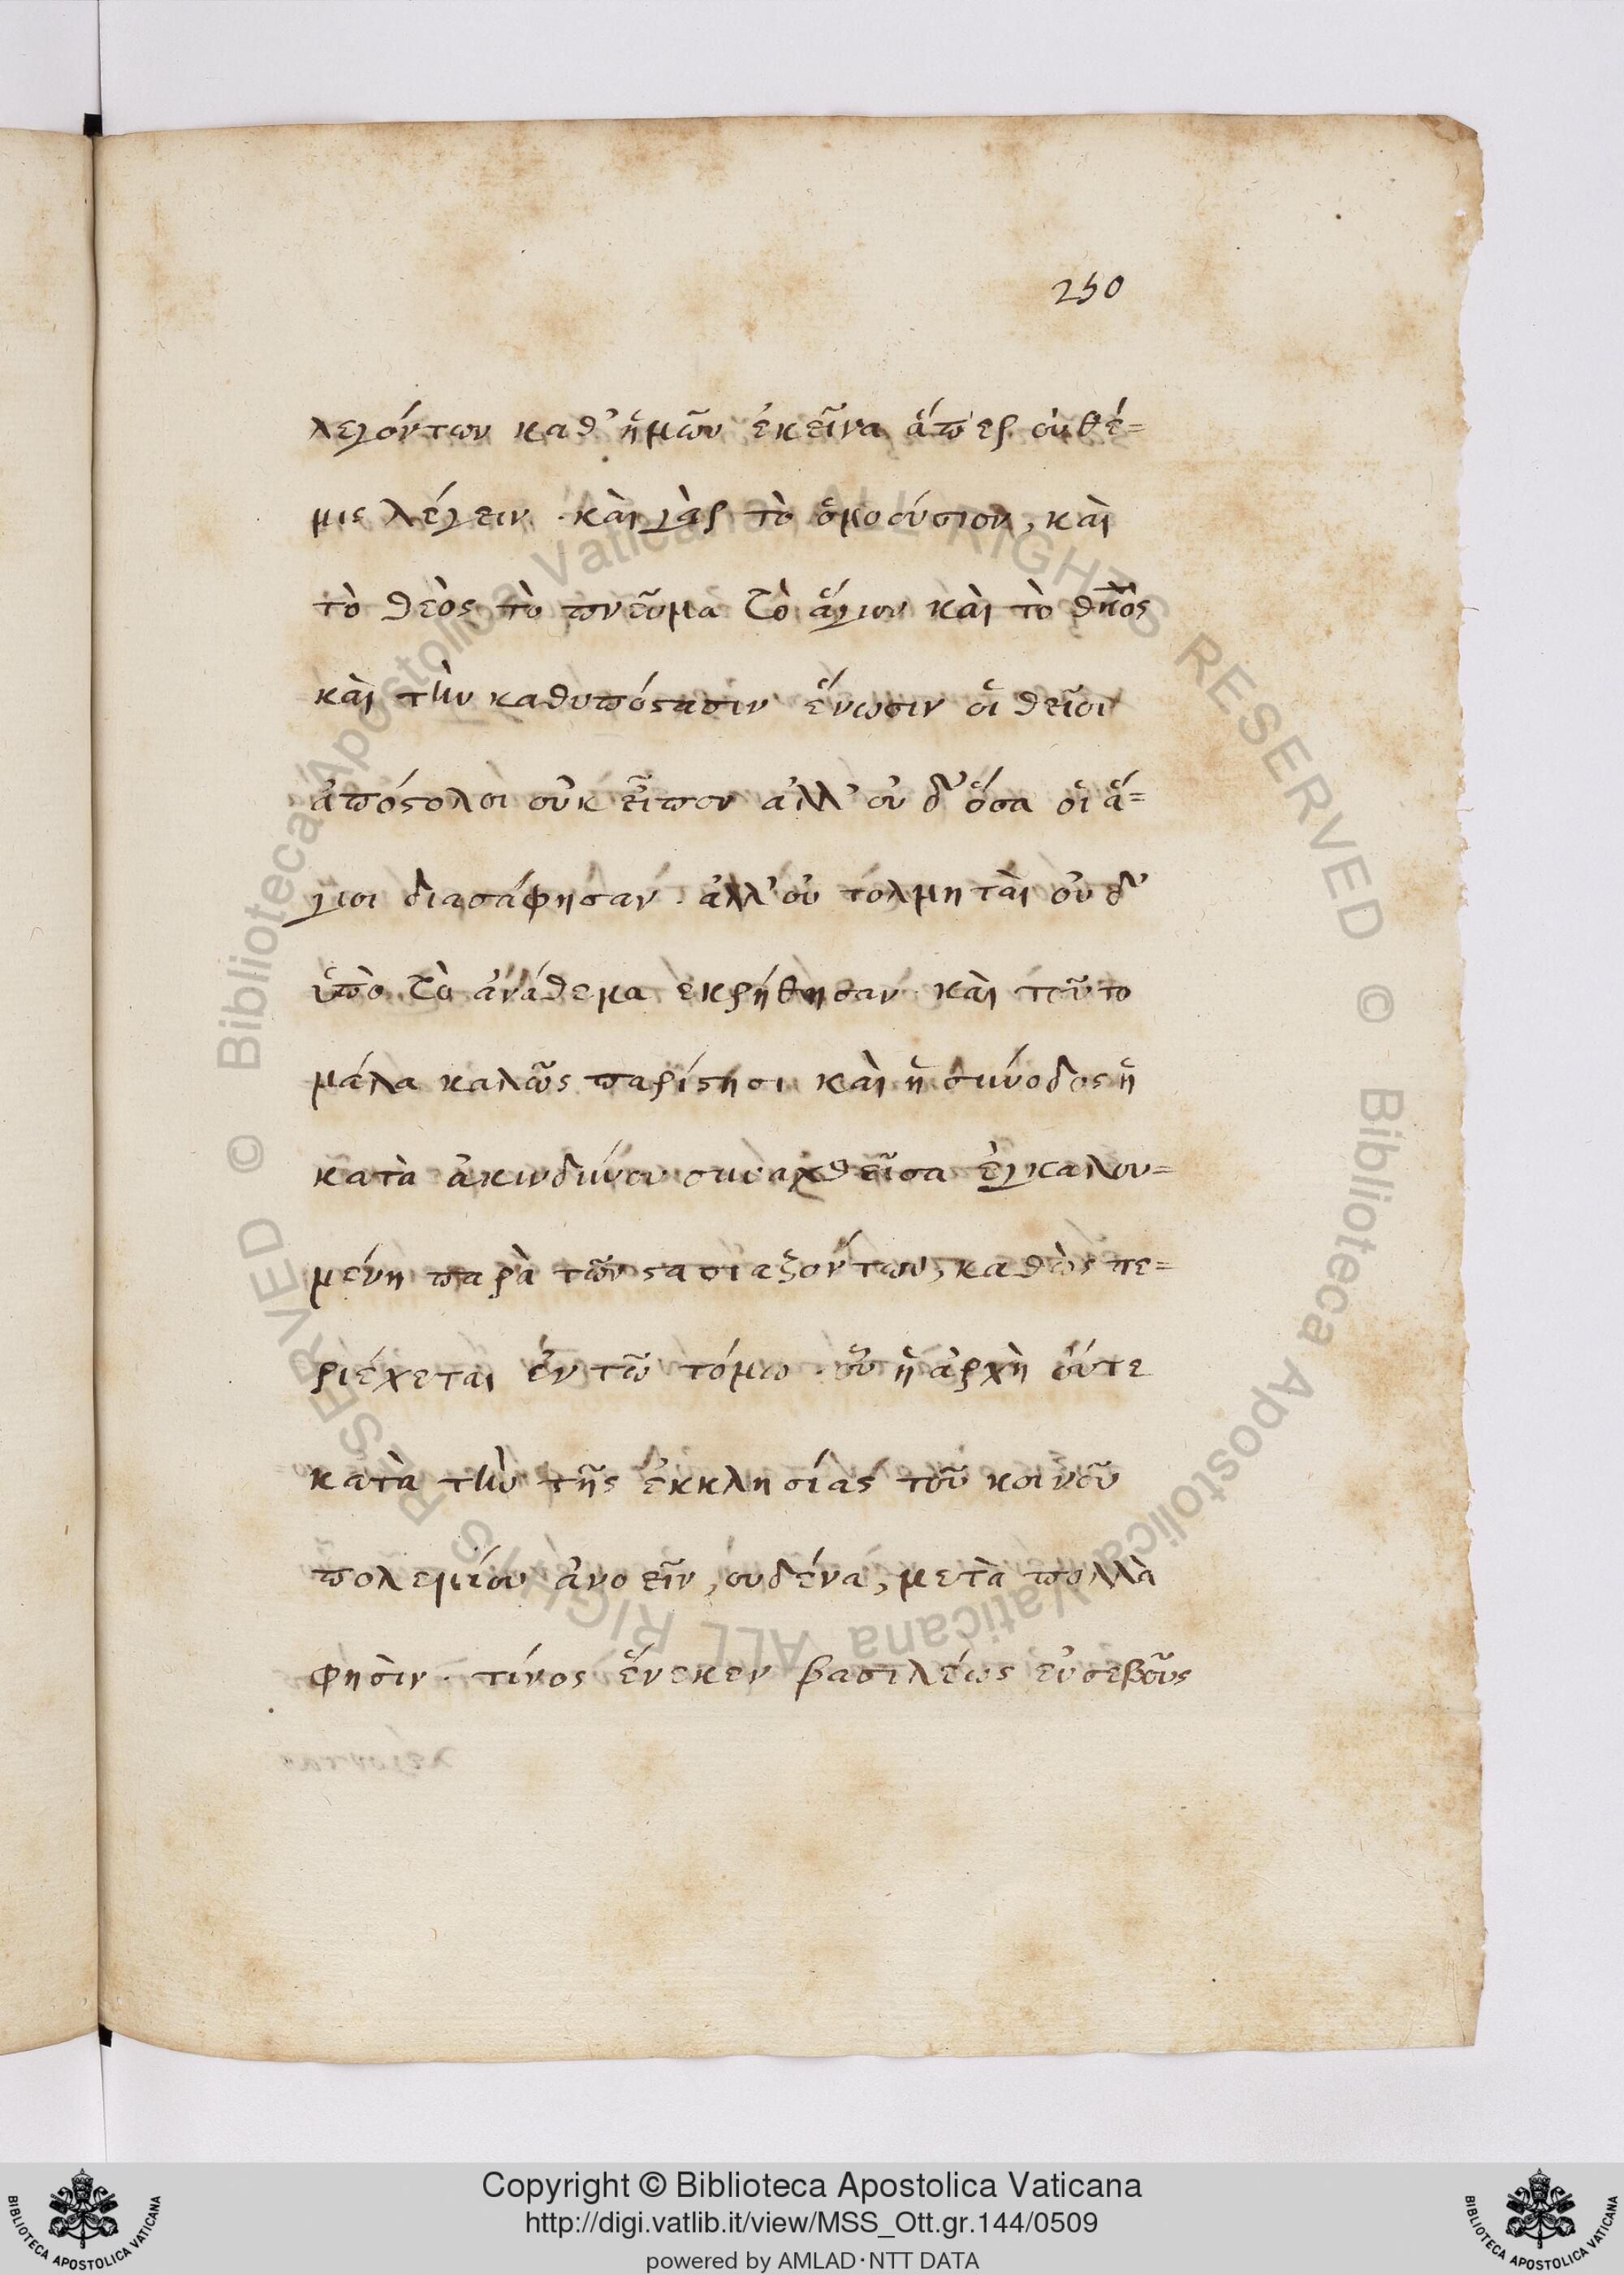 250
λεγόντων καθ' ἡμῶν ἐκεῖνα ἅπερ οὐ θέ=
μις λέγειν · καὶ γὰρ τὸ ὁμοούσιον, καὶ
τὸ θεὸς τὸ πνεῦμα τὸ ἅγιον καὶ τὸ θκὸς
καὶ τὴν καθυπόστασιν ἕνωσιν οἱ θεῖοι
ἀπόστολοι οὐκ εἶπον ἀλλ' οὐδ' ὅσα οἱ ἅ=
γιοι διασάφησαν · ἀλλ' οὐ τόλμηταὶ οὐδ'
ὑπὸ τὸ ἀνάθεμα ἐκρήθησαν · καὶ τοῦτο
μάλα καλῶς παρίστησι καὶ ἡ σύνοδος ἡ
κατὰ ἀκινδύνου συναχθεῖσα ἐγκαλου=
μένη παρὰ τῶν στασιαζόντων, καθὼς πε=
ριέχεται ἐν τῶ τόμω · οὗ ἡ ἀρχὴ οὔτε
κατὰ τὴν τῆς ἐκκλησίας τοῦ κοινοῦ
πολεμίου ἀνοεῖν, ουδένα, μετὰ πολλὰ
φησὶν · τίνος ἕνεκεν βασιλέως εὐσεβοῦς
Copyright © Biblioteca Apostolica Vaticana
http://digi.vatlib.it/view/MSS_Ott.gr.144/0509
powered by AMLAD·NTT DATA
© Biblioteca Apostolica Vaticana ALL RIGHTS RESERVED
© Biblioteca Apostolica Vaticana ALL RIGHTS RESERVED
BIBLIOTECA APOSTOLICA VATICANA
BIBLIOTECA APOSTOLICA VATICANA